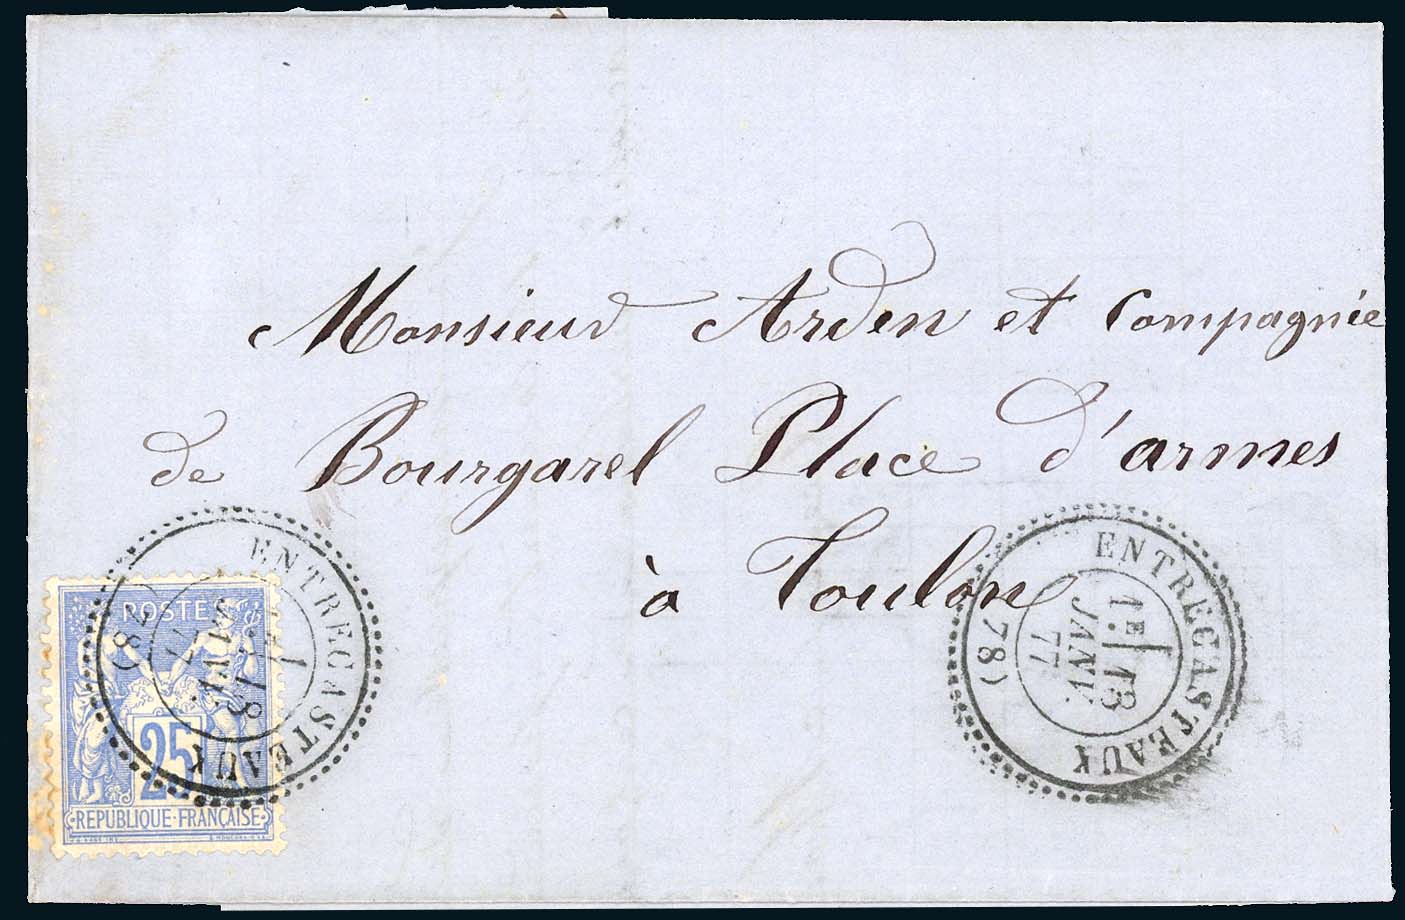 Monsieur Arden et Compagnie
de Bourgarel Place d'armes
à Toulon
ENTRECASTEAUX
1E
13
JANV.
77
(78)
ENTRECASTEAUX
13
JANV.
77
(78)
POSTES
25
REPUBLIQUE FRANÇAISE